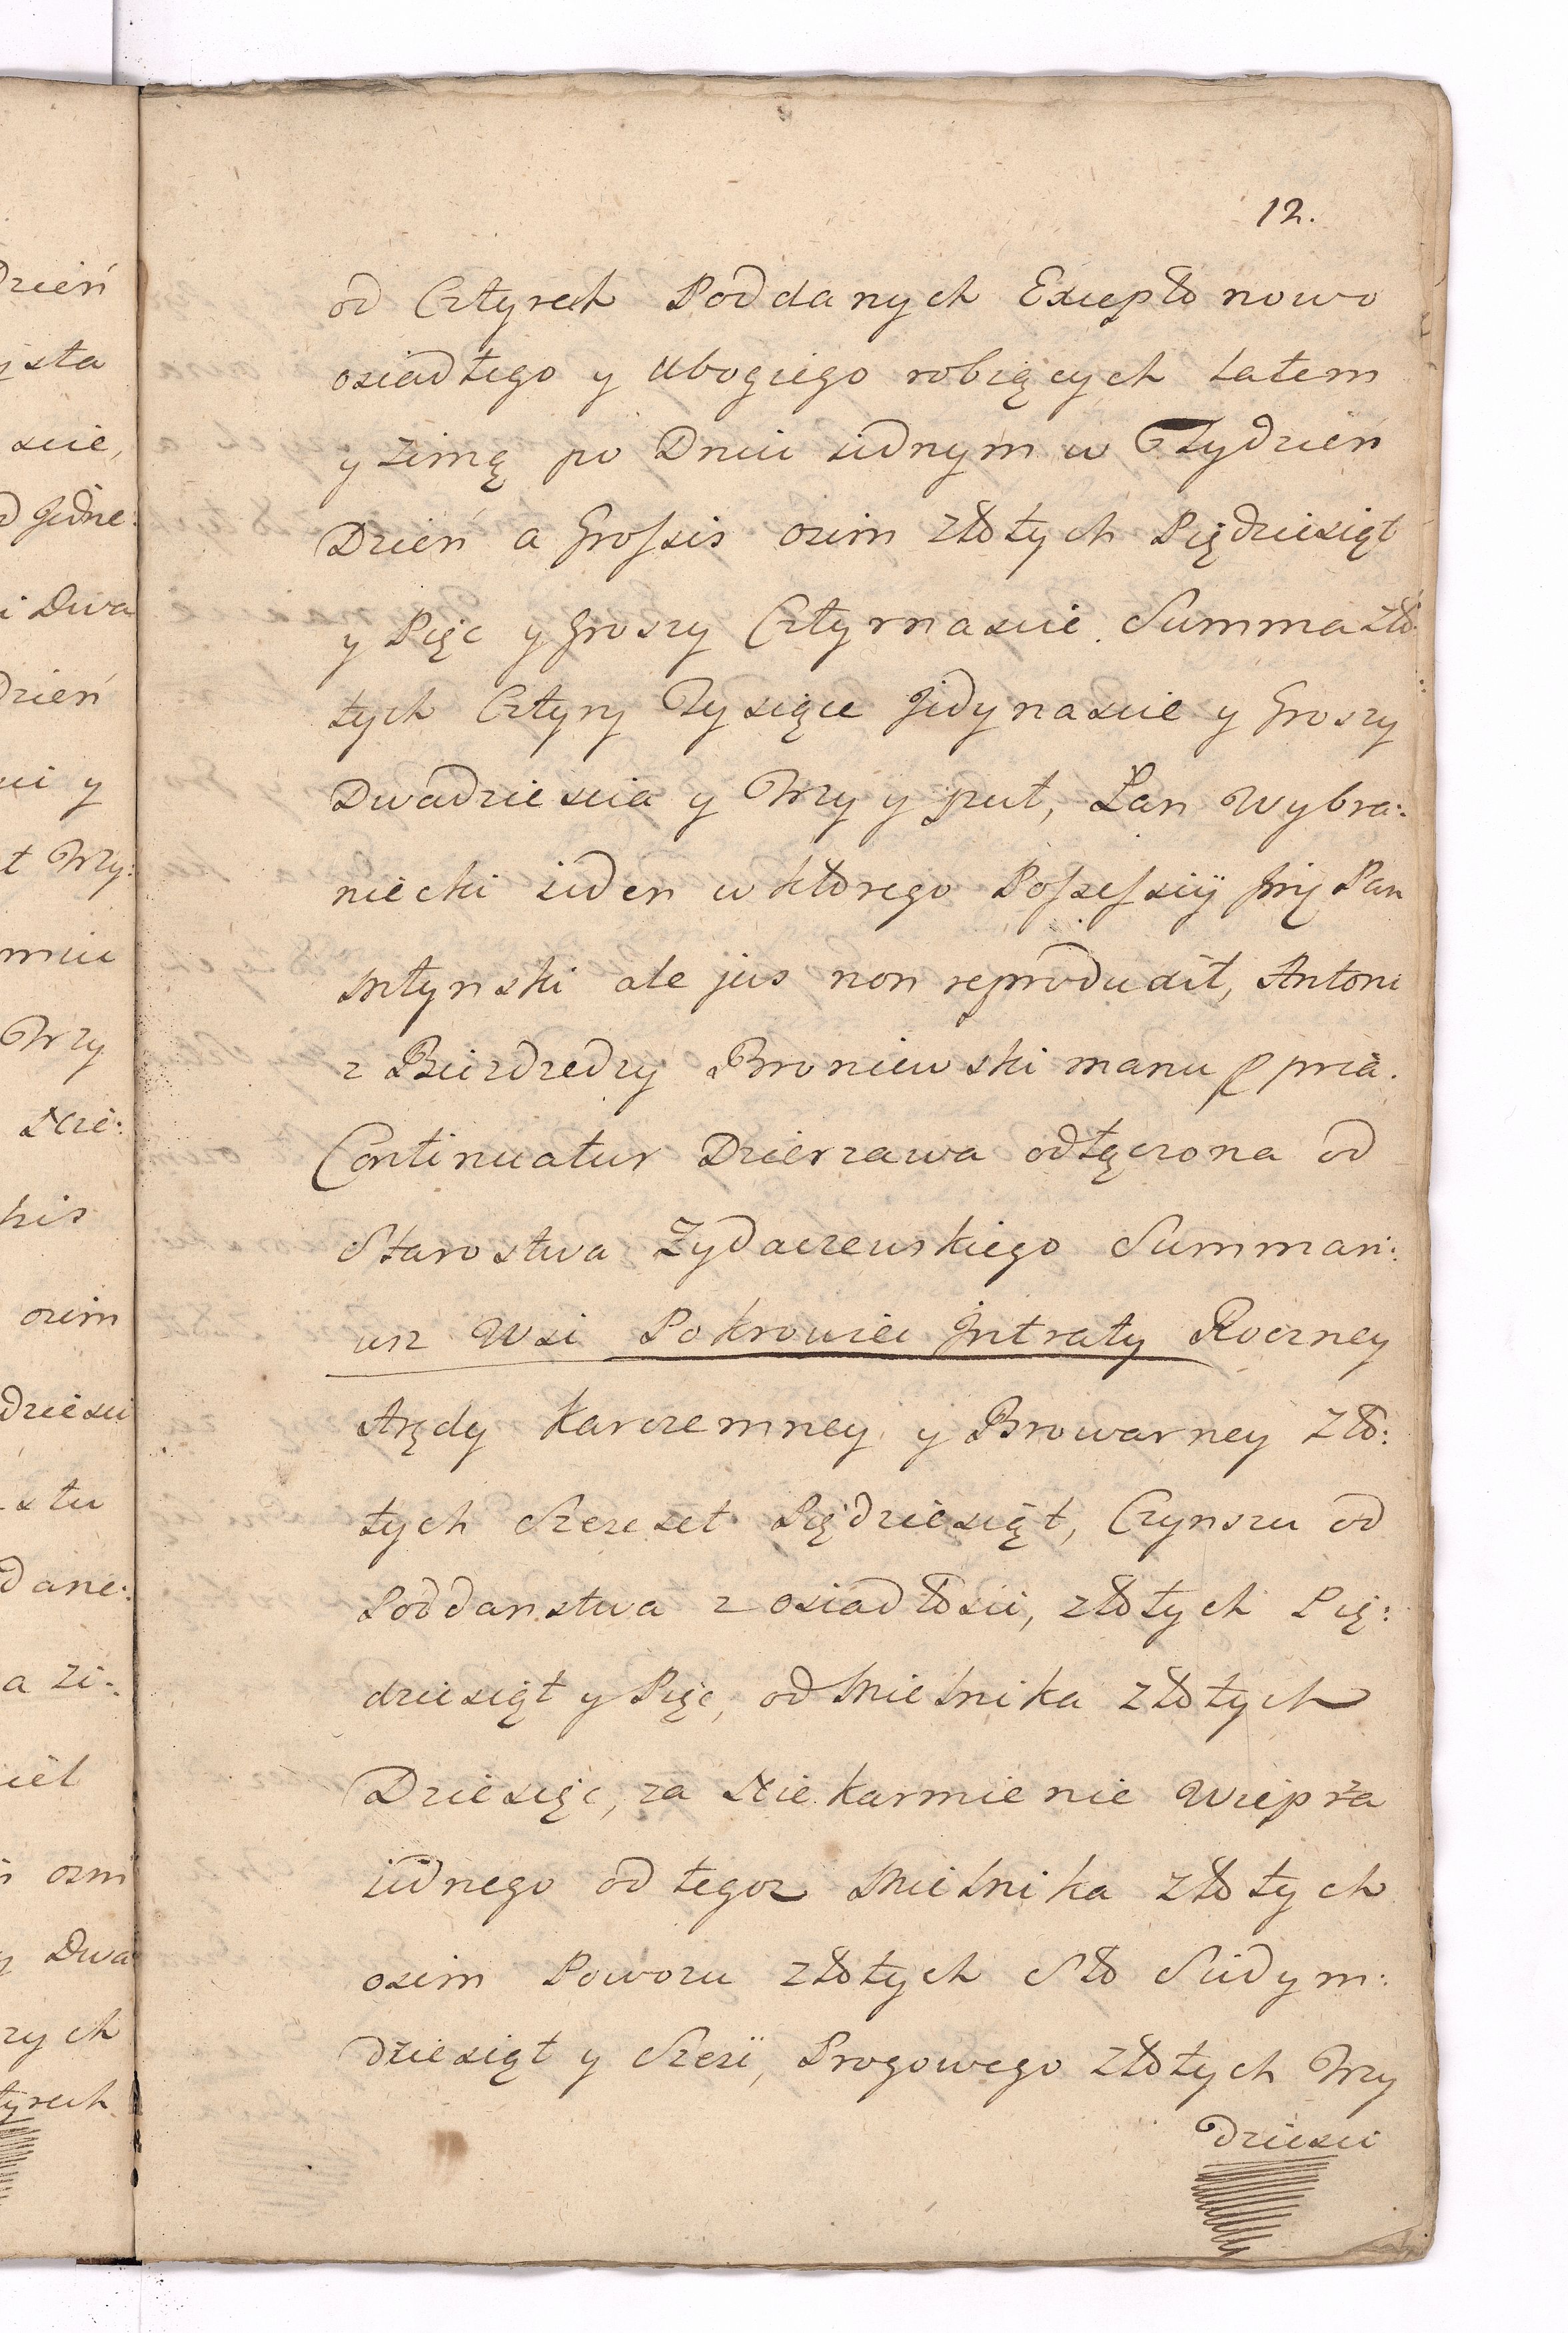 12.
od Cztyrech Poddanych Excepto nowo
osiadłego y ubogiego robiących Latem
y zimą po Dniu iednym w Tydzien
Dzień a Grossis osim złotych Piędziesiąt
y Pięc y groszy Cztyrnascie. Summa zło:
tych Cztyry Tysiące Jedynascie y Groszy
Dwadziescia y Trzy y puł, Łan Wybra:
niecki ieden w ktorego Possessyi jmę Pan
Młynski ale jus non reproduxit, Antoni
z Biezdzedzy Broniewski manu ppria.
Continuatur Dzierzawa odłączona od
Starostwa Zydaczewskiego Summari:
usz Wsi Pokrowiec Jntraty Roczney
Arędy Karczemney y Browarney Zło:
tych Szeset Piędziesiąt, Czynszu od
Poddanstwa z osiadłosci, złotych Pię:
dziesiąt y Pięc, od Mielnika złotych
Dziesięc, za Nie karmienie Wieprza
iednego od tegoz Mielnika złotych
osim Powozu złotych Sto Siedym:
dziesiąt y Szesc, Progowego złotych Trzy
dziesci
Dzień
sta
scie,
Jedne:
i Dwa
Dzień
y
Trzy:
Trzy
Nie:
kis
osim
dziesci
stu
dane:
a Zi:
osm
y Dwa
tyrech